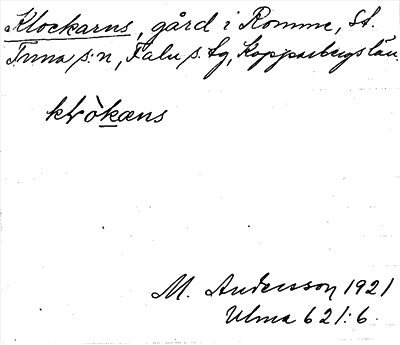 Klockarns, gård i Romme, St.
Tuna s:n, Falu s. tg, Kopparbergs län.
klò̀kæns
M. Andersson 1921
Ulma 621:6.